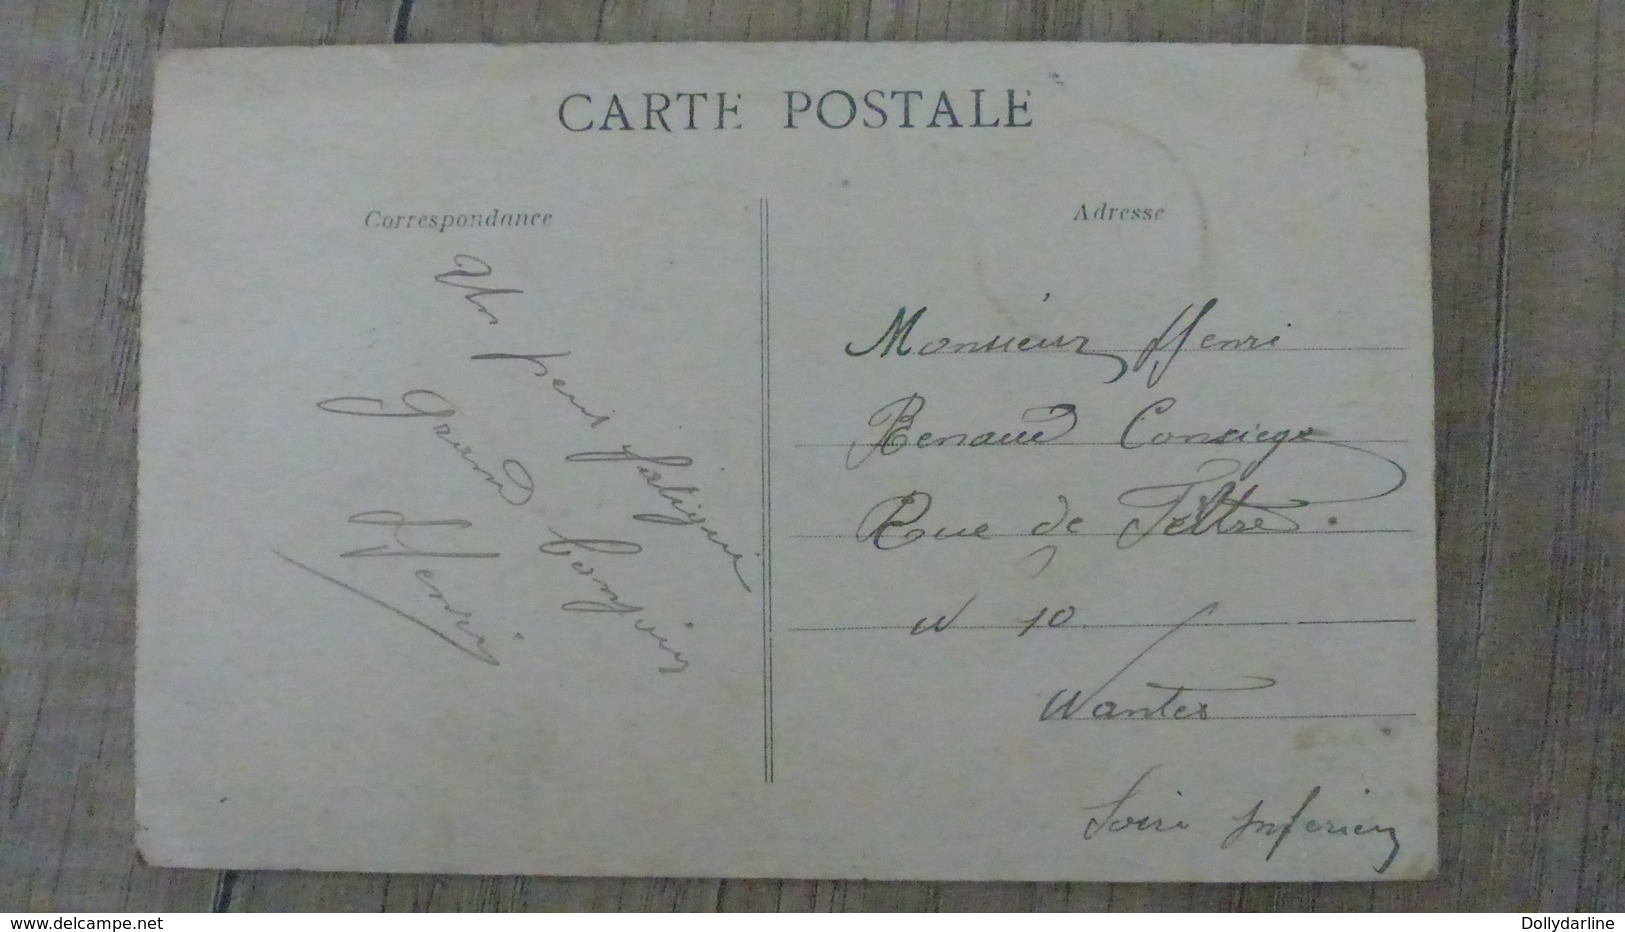 CARTE POSTALE
Correspondance
Un peu fatigué
grand
Henri
Adresse
Monsieur Henri
Renaud Consiege
Rue de Feltre.
N 10
Nantes
Loire Inferieu
www.delcampe.net
Dollydarline